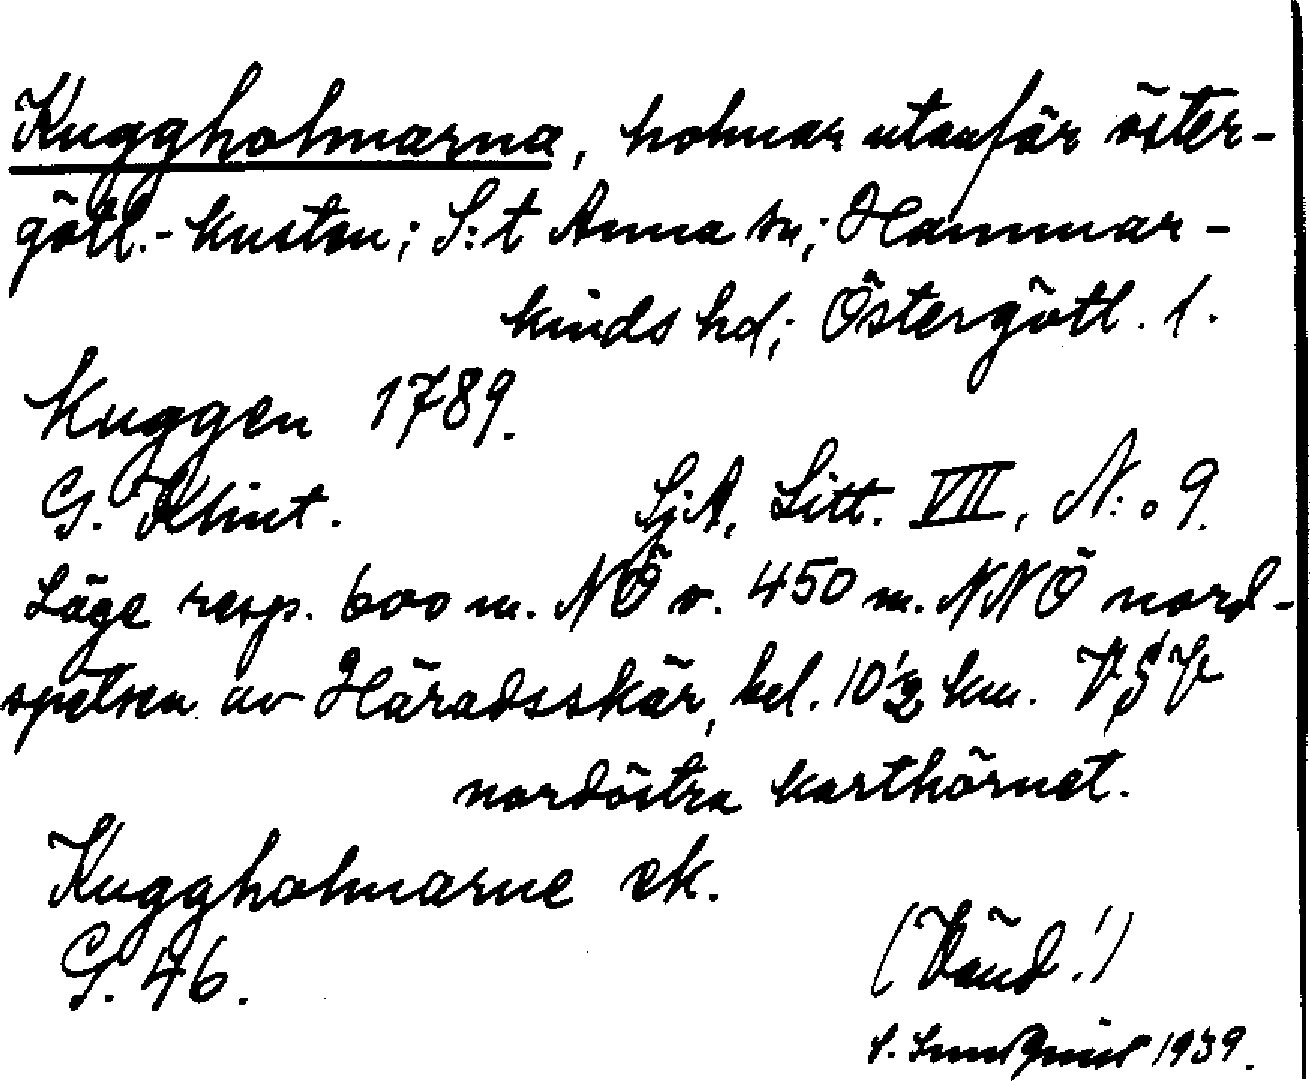 Kuggholmarna, holmar utanför öster-
götl.-kusten; S:t Anna sn; Hammar-
kinds hd; Östergötl. l.
Kuggen 1789.
G. Klint. SjA, Litt. VII, N:o 9.
Läge resp. 600 m. NÖ o. 450 m. NNÖ nord-
spetsen av Häradsskär, bel. 10 1/2 km. VSV
nordöstra karthörnet.
Kuggholmarne ek.
G. 46.
(Vänd!)
S. 1939.